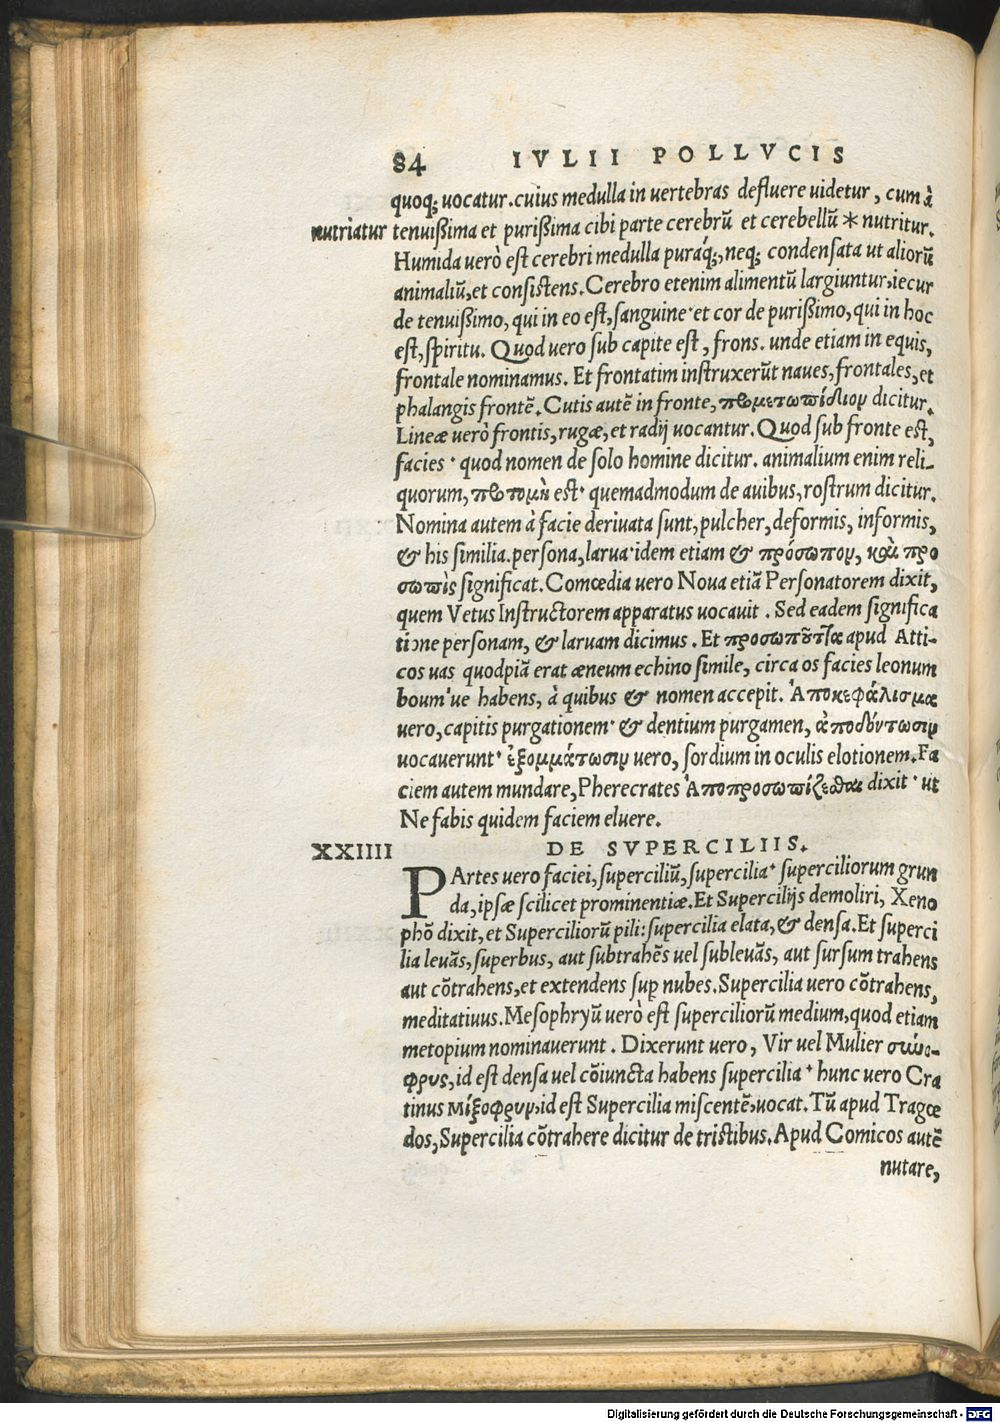 84 IVLII POLLVCIS
quoq; uocatur. cuius medulla in uertebras defluere uidetur, cum à
nutriatur tenuißima et purißima cibi parte cerebrū et cerebellū * nutritur.
Humida uerò est cerebri medulla puraq́;, neq; condensata ut aliorū
animaliū, et consistens. Cerebro etenim alimentū largiuntur, iecur
de tenuißimo, qui in eo est, sanguine· et cor de purißimo, qui in hoc
est, spiritu. Quod uero sub capite est, frons. unde etiam in equis,
frontale nominamus. Et frontatim instruxerūt naues, frontales, et
phalangis frontē. Cutis autē in fronte, προμετωπίδιον dicitur.
Lineæ uerò frontis, rugæ, et radij uocantur. Quod sub fronte est,
facies· quod nomen de solo homine dicitur. animalium enim reli-
quorum, προτομὴ est· quemadmodum de auibus, rostrum dicitur.
Nomina autem à facie deriuata sunt, pulcher, deformis, informis,
& his similia. persona, larua· idem etiam & πρόσωπον, καὶ προ
σωπὶς significat. Comœdia uero Noua etiā Personatorem dixit,
quem Vetus Instructorem apparatus uocauit. Sed eadem significa
tione personam, & laruam dicimus. Et προσωποῦττα apud Atti-
cos uas quodpiā erat æneum echino simile, circa os facies leonum
boum'ue habens, à quibus & nomen accepit. Ἀποκεφάλισμα
uero, capitis purgationem· & dentium purgamen, ἀποδόντωσιν
uocauerunt· ἐξομμάτωσιν uero, sordium in oculis elotionem. Fa
ciem autem mundare, Pherecrates Ἀποπροσωπίζεσθαι dixit· ut
Ne fabis quidem faciem eluere.
XXIIII DE SVPERCILIIS.
PArtes uero faciei, superciliū, supercilia· superciliorum grun
da, ipsæ scilicet prominentiæ. Et Supercilijs demoliri, Xeno
phō dixit, et Superciliorū pili: supercilia elata, & densa. Et superci
lia leuās, superbus, aut subtrahēs uel subleuās, aut sursum trahens
aut cōtrahens, et extendens sup nubes. Supercilia uero cōtrahens,
meditatiuus. Mesophryū uerò est superciliorū medium, quod etiam
metopium nominauerunt. Dixerunt uero, Vir uel Mulier σύνο-
φρυς, id est densa uel cōiuncta habens supercilia· hunc uero Cra
tinus Μίξοφρυν, id est Supercilia miscentē, uocat. Tū apud Tragœ
dos, Supercilia cōtrahere dicitur de tristibus. Apud Comicos autē
nutare,
Digitalisierung gefördert durch die Deutsche Forschungsgemeinschaft - DFG